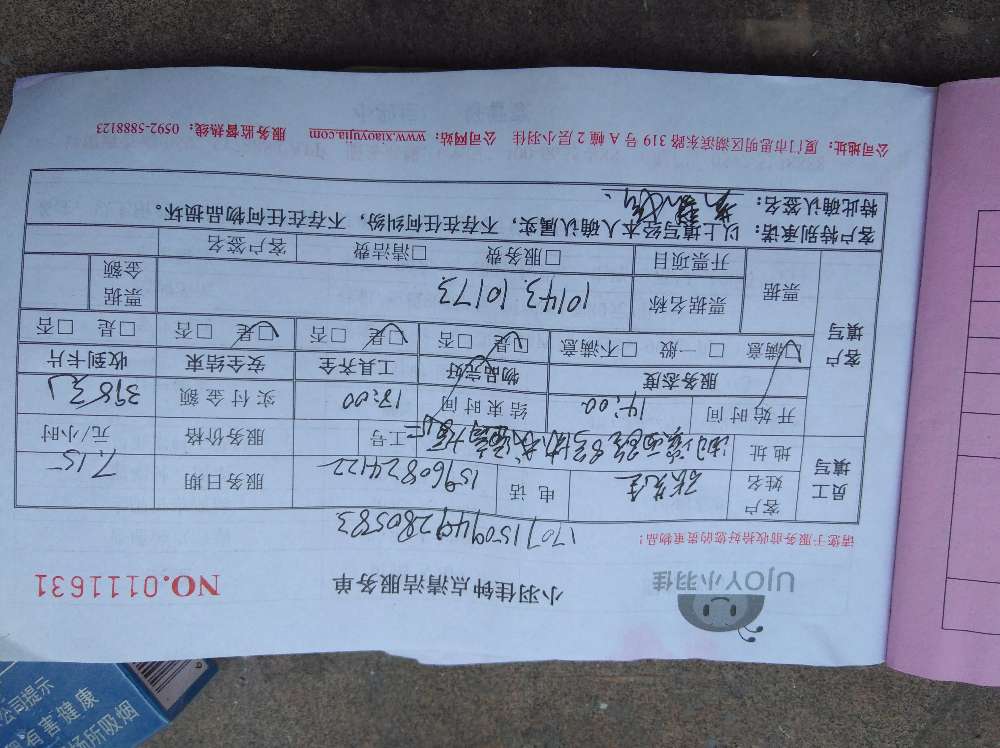 UJOY小羽佳
小羽佳钟点清洁服务单
NO.0111631
请您于服务前收拾好您的贵重物品！
17071509449280583
员工填写
客户姓名 张先生 电话 15960824422 服务日期 7.15
地址 工号 服务价格 元/小时
开始时间 14:00 结束时间 18:00 实付金额 398元
客户填写
服务态度 物品完好 工具齐全 安全结束 收到卡片
☑满意 □一般 □不满意 ☑是 □否 ☑是 □否 ☑是 □否 □是 □否
票据 票据名称 10143.10173 票据金额
开票项目 □服务费 □清洁费 客户签名
客户特别承诺：以上填写经本人确认属实，不存在任何纠纷，不存在任何物品损坏。
特此确认签名：
公司地址：厦门市思明区湖滨东路319号A幢2层小羽佳 公司网站：www.xiaoyujia.com 服务监督热线：0592-5888123
公司提示
有害健康
场所吸烟